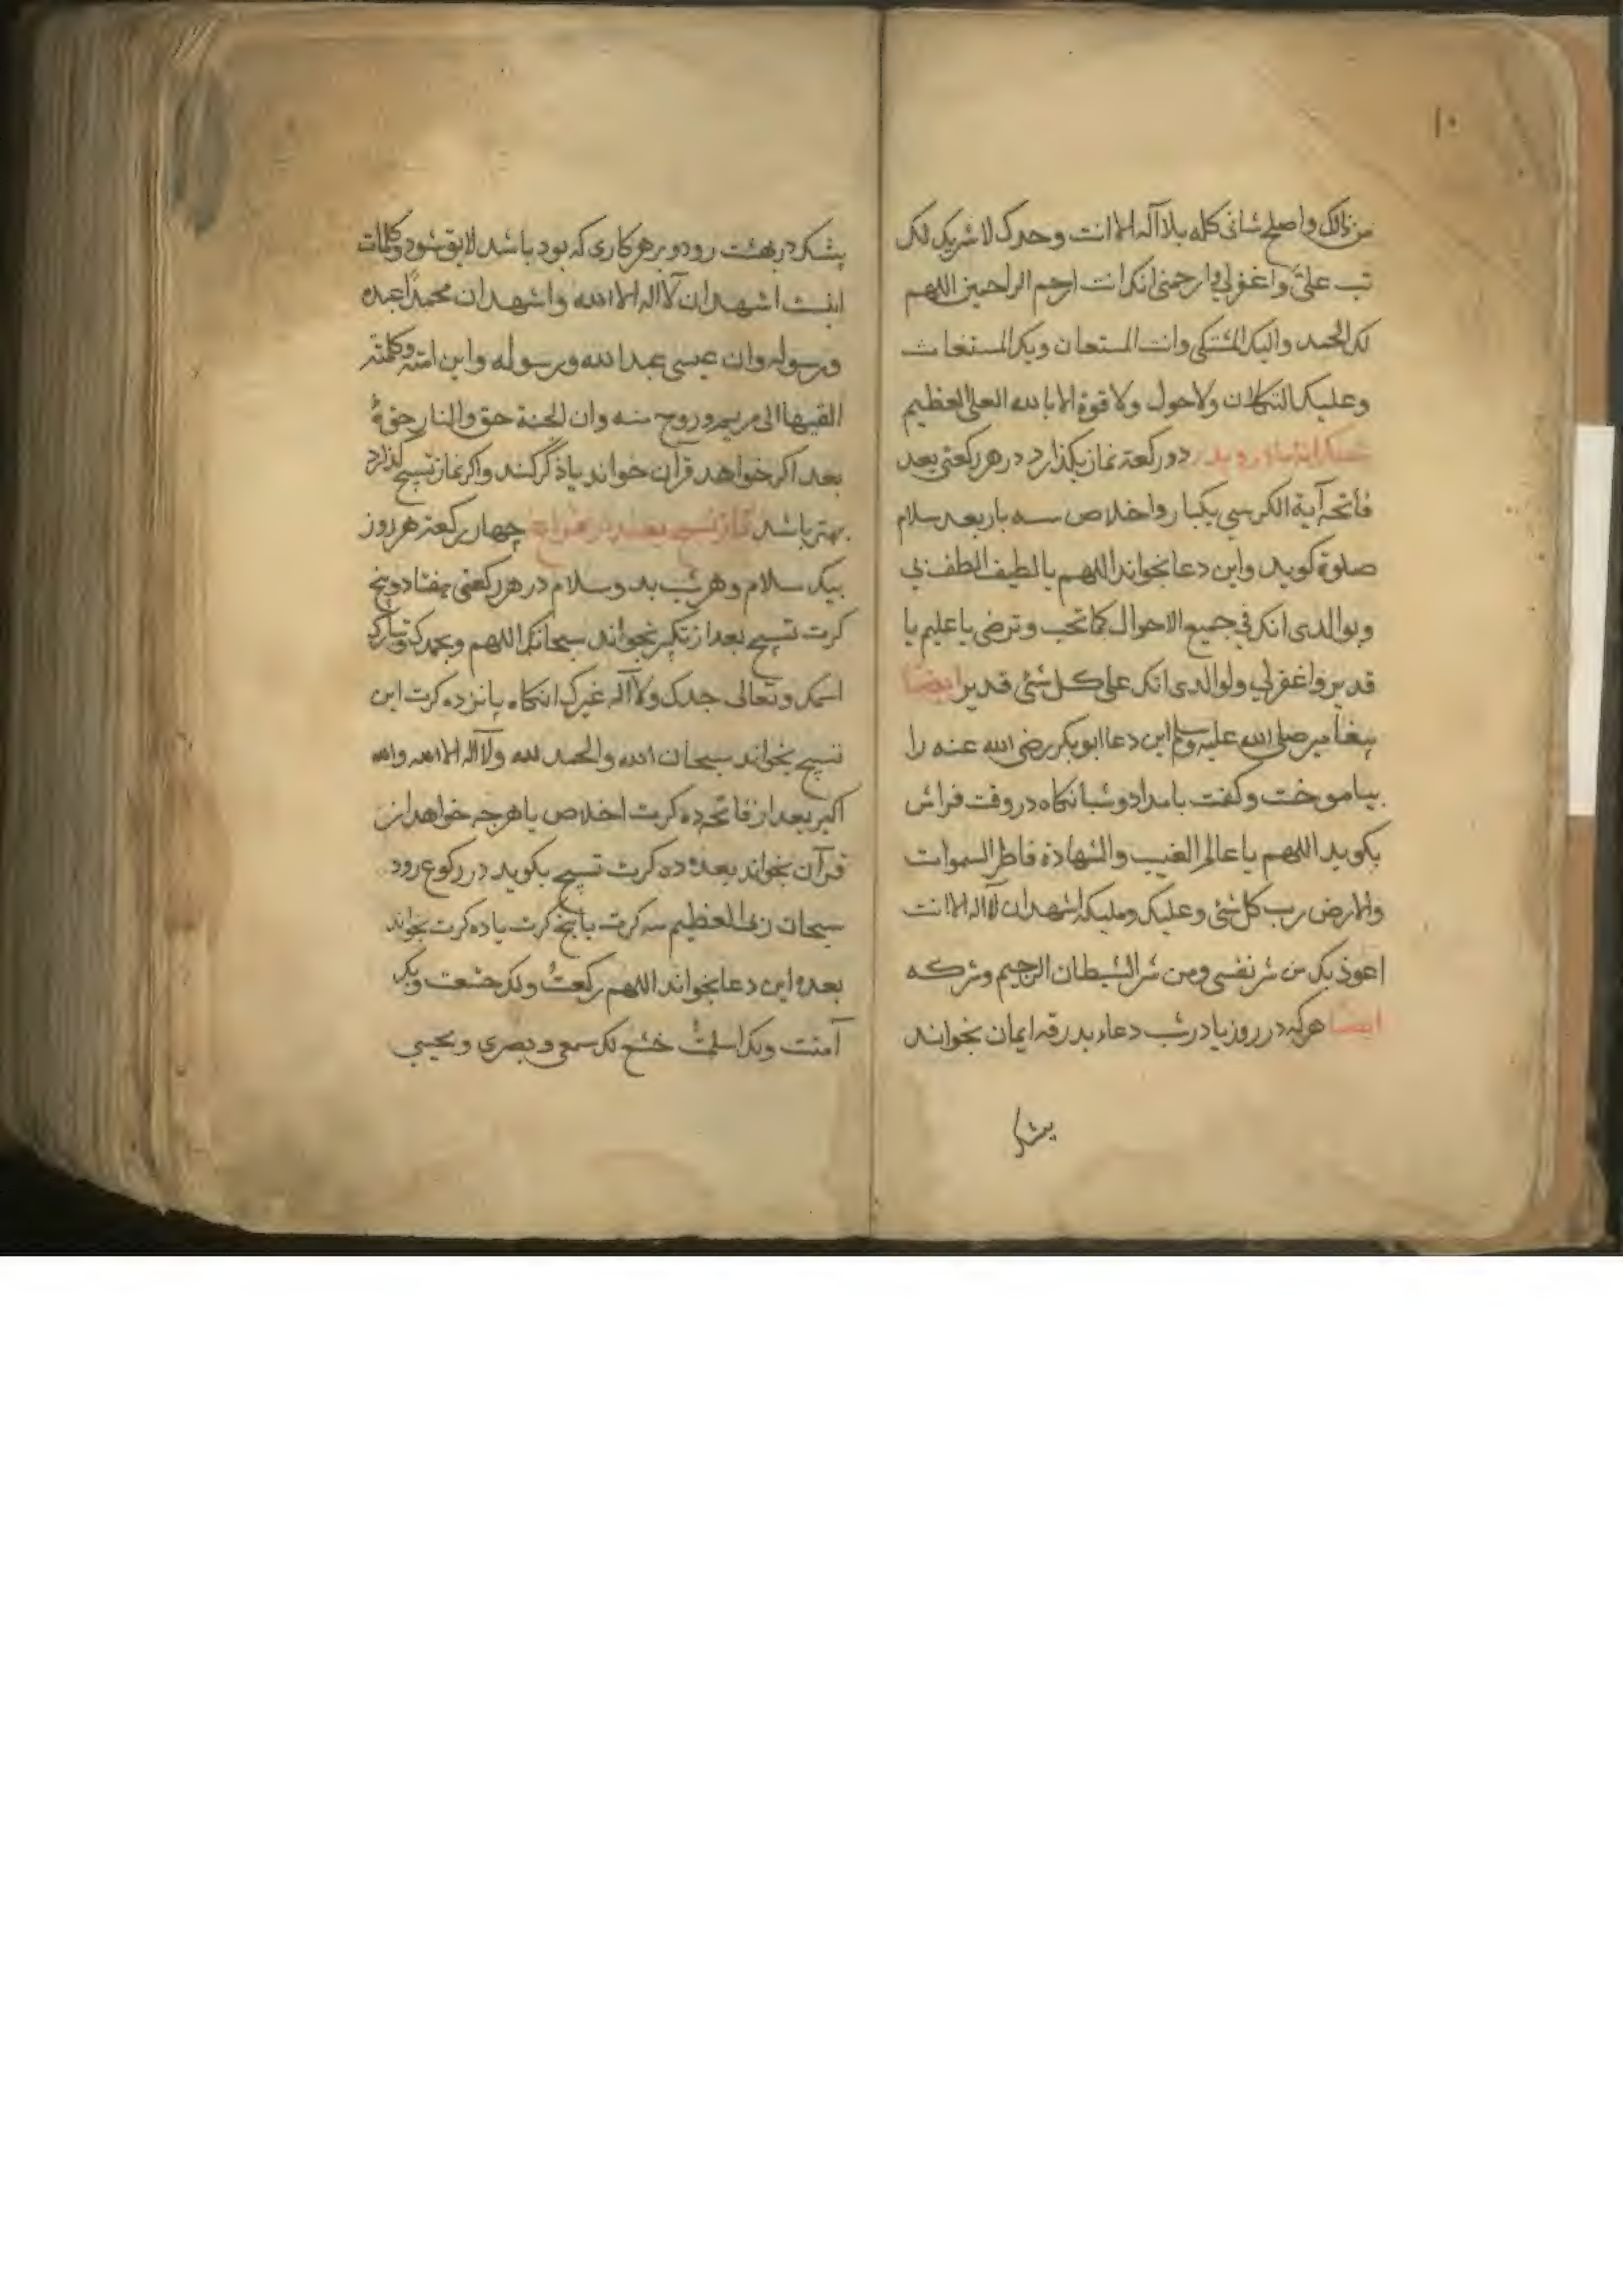 ١٠
من ذلك واصلح شانی كله بلا اله الا انت وحدك لا شريك لك
تب علیّ واغفر لی وارحمنی انك انت ارحم الراحمين اللهم
لك الحمد واليك المشتكی وانت المستعان وبك المستغاث
وعليك التكلان ولا حول ولا قوة الا بالله العلی العظيم
دو ركعة نماز بكذارد در هر ركعتی بعد
فاتحه آية الكرسی يكبار واخلاص سه بار بعد سلام
صلوة كويد واين دعا بخواند اللهم يا لطيف الطف بی
وبوالدی انك فی جميع الاحوال كما تحب وترضی يا عليم يا
قدير واغفر لی ولوالدی انك علی كل شئ قدير ايضا
پيغامبر صلی الله عليه وسلم اين دعا ابو بكر رضی الله عنه را
بياموخت وكفت بامداد وشبانكاه در وقت فراش
بكويد اللهم يا عالم الغيب والشهادة فاطر السموات
والارض رب كل شئ وعليك ومليكه اشهد ان لا اله الا انت
اعوذ بك من شر نفسی ومن شر الشيطان الرجيم وشركه
ايضا هركه در روز يا در شب دعاء بدرقه ايمان بخواند
بيشك
بيشك در بهشت رود و بر هر كاری كه بود باشد لايق شود وكلمات
اينست اشهد ان لا اله الا الله واشهد ان محمدًا عبده
ورسوله وان عيسی عبد الله ورسوله وابن امته وكلمته
القيها الی مريم وروح منه وان الجنة حق والنار حق
بعد اكر خواهد قرآن خواند يا ذكر كند واكر نماز تسبيح كذارد
بهتر باشد نماز تسبيح چهار ركعة هر روز
بيك سلام وهر شب بدو سلام در هر ركعتی هفتاد وپنج
كرت تسبيح بعد از تكبير بخواند سبحانك اللهم وبحمدك وتبارك
اسمك وتعالی جدك ولا اله غيرك انكاه پانزده كرت اين
تسبيح بخواند سبحان الله والحمد لله ولا اله الا الله والله
اكبر بعد از فاتحه ده كرت اخلاص يا هرچه خواهد از
قرآن بخواند بعده ده كرت تسبيح بكويد در ركوع رود
سبحان ربی العظيم سه كرت يا پنج كرت يا ده كرت بخواند
بعده اين دعا بخواند اللهم لك ركعتُ ولك خشعت وبك
آمنت ولك اسلمتُ خشع لك سمعی وبصری ومخی